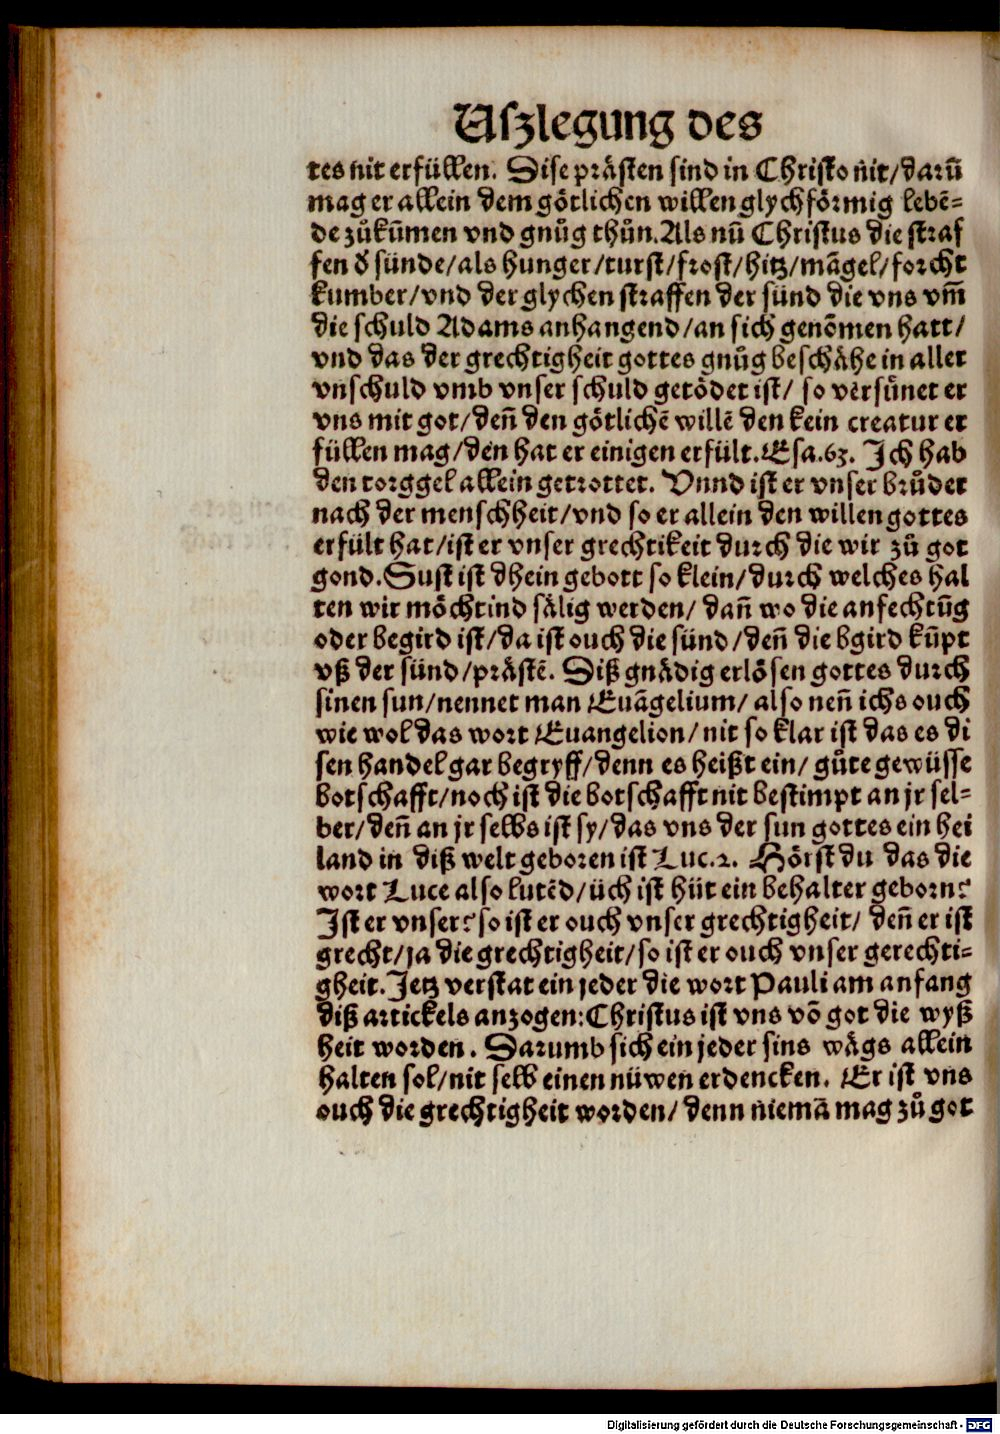 Uſzlegung des
tes nit erfüllen. Diſe präſten ſind in Chriſto nit/darū
mag er allein dem götlichen willen glychförmig lebē⸗
de zůkūmen vnd gnůg thůn. Als nū Chriſtus die ſtraf
fen d̕ ſünde/als hunger/turſt/froſt/hitz/mägel/forcht
kumber/vnd der glychen ſtraffen der ſünd die vns vm̄
die ſchuld Adams anhangend/an ſich genōmen hatt/
vnd das der grechtigheit gottes gnůg beſchähe in aller
vnſchuld vmb vnſer ſchuld getödet iſt/ ſo verſünet er
vns mit got/den̄ den götlichē willē den kein creatur er
füllen mag/den hat er einigen erfült. Eſa.63. Ich hab
den torggel allein getrottet. Vnnd iſt er vnſer brůder
nach der menſchheit/vnd ſo er allein den willen gottes
erfült hat/iſt er vnſer grechtikeit durch die wir zů got
gond. Suſt iſt dhein gebott ſo klein/durch welches hal
ten wir möchtind ſälig werden/ dan̄ wo die anfechtūg
oder begird iſt/da iſt ouch die ſünd/den̄ die bgird kūpt
vß der ſünd/präſtē. Diß gnädig erlöſen gottes durch
ſinen ſun/nennet man Euāgelium/ alſo nen̄ ichs ouch
wie wol das wort Euangelion/ nit ſo klar iſt das es di
ſen handel gar begryff/denn es heißt ein/ gůte gewüſſe
botſchafft/noch iſt die botſchafft nit beſtimpt an jr ſel⸗
ber/den̄ an jr ſelbs iſt ſy/das vns der ſun gottes ein hei
land in diß welt geboren iſt Luc.2. Hörſt du das die
wort Luce alſo lutēd/üch iſt hüt ein behalter geborn?
Iſt er vnſer? ſo iſt er ouch vnſer grechtigheit/ den̄ er iſt
grecht/ja die grechtigheit/ſo iſt er ouch vnſer gerechti⸗
gheit. Jetz verſtat ein jeder die wort Pauli am anfang
diß artickels anzogen: Chriſtus iſt vns vō got die wyß
heit worden. Darumb ſich ein jeder ſins wägs allein
halten ſol/nit ſelb einen nüwen erdencken. Er iſt vns
ouch die grechtigheit worden/ denn niemā mag zů got
Digitalisierung gefördert durch die Deutsche Forschungsgemeinschaft - DFG